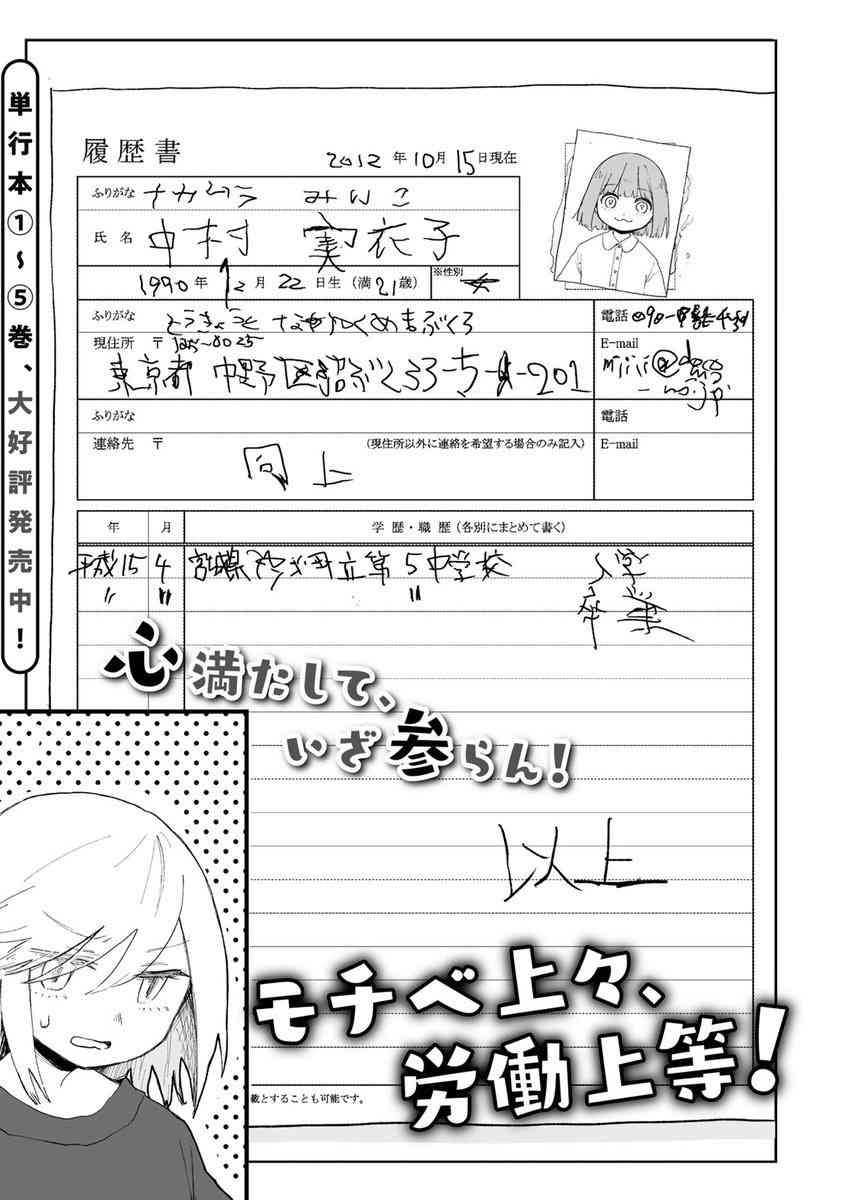 単行本①～⑤巻、大好評発売中！
履歴書
2012年10月15日現在
ふりがな なかむら みいこ
氏名 中村 実衣子
1990年12月22日生（満21歳）
※性別
ふりがな
現住所 〒
東京都 中野区
電話
E-mail
ふりがな
電話
連絡先 〒
（現住所以外に連絡を希望する場合のみ記入）
E-mail
同上
年 月 学歴・職歴（各別にまとめて書く）
平成15 4 宮城県 立第5中学校 入学
〃 〃 〃 卒業
心満たして、
いざ参らん！
以上
モチベ上々、
労働上等！
載とすることも可能です。